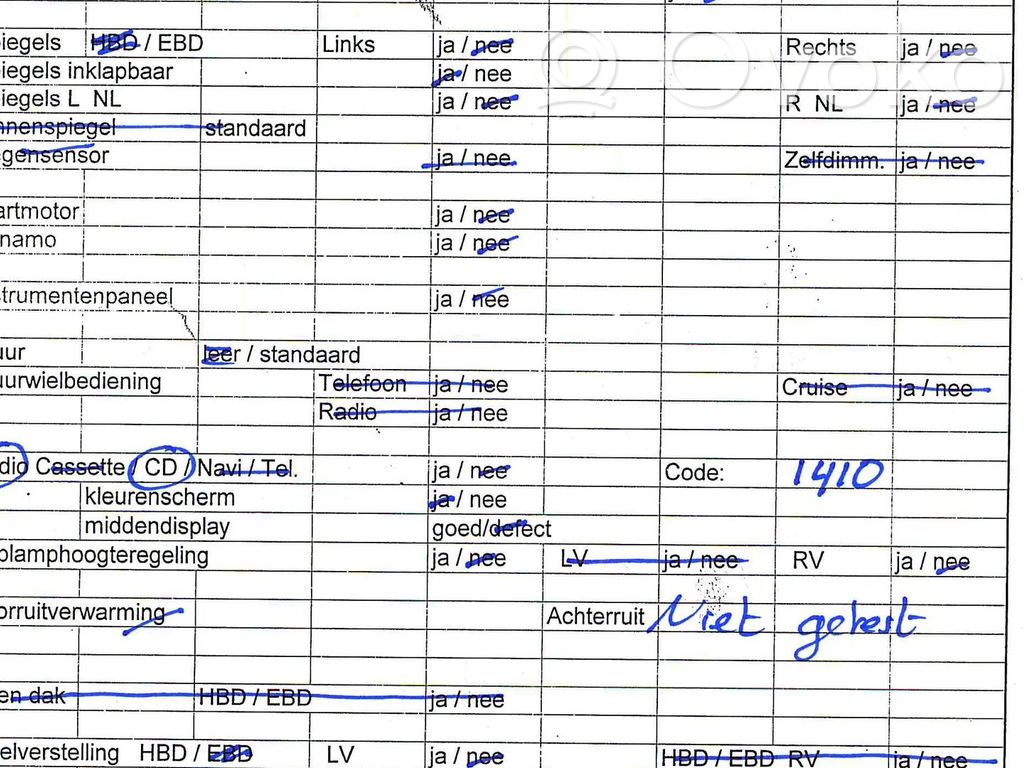 iegels HBD / EBD Links ja / nee Rechts ja / nee
iegels inklapbaar ja / nee
iegels L NL ja / nee R NL ja / nee
nnenspiegel standaard
gensensor ja / nee Zelfdimm. ja / nee
artmotor ja / nee
namo ja / nee
strumentenpaneel ja / nee
uur leer / standaard
uurwielbediening Telefoon ja / nee Cruise ja / nee
Radio ja / nee
dio Cassette / CD / Navi / Tel. ja / nee Code: 1410
kleurenscherm ja / nee
middendisplay goed/defect
plamphoogteregeling ja / nee LV ja / nee RV ja / nee
orruitverwarming Achterruit Niet getest
en dak HBD / EBD ja / nee
elverstelling HBD / EBD LV ja / nee HBD / EBD RV ja / nee
OVOKO